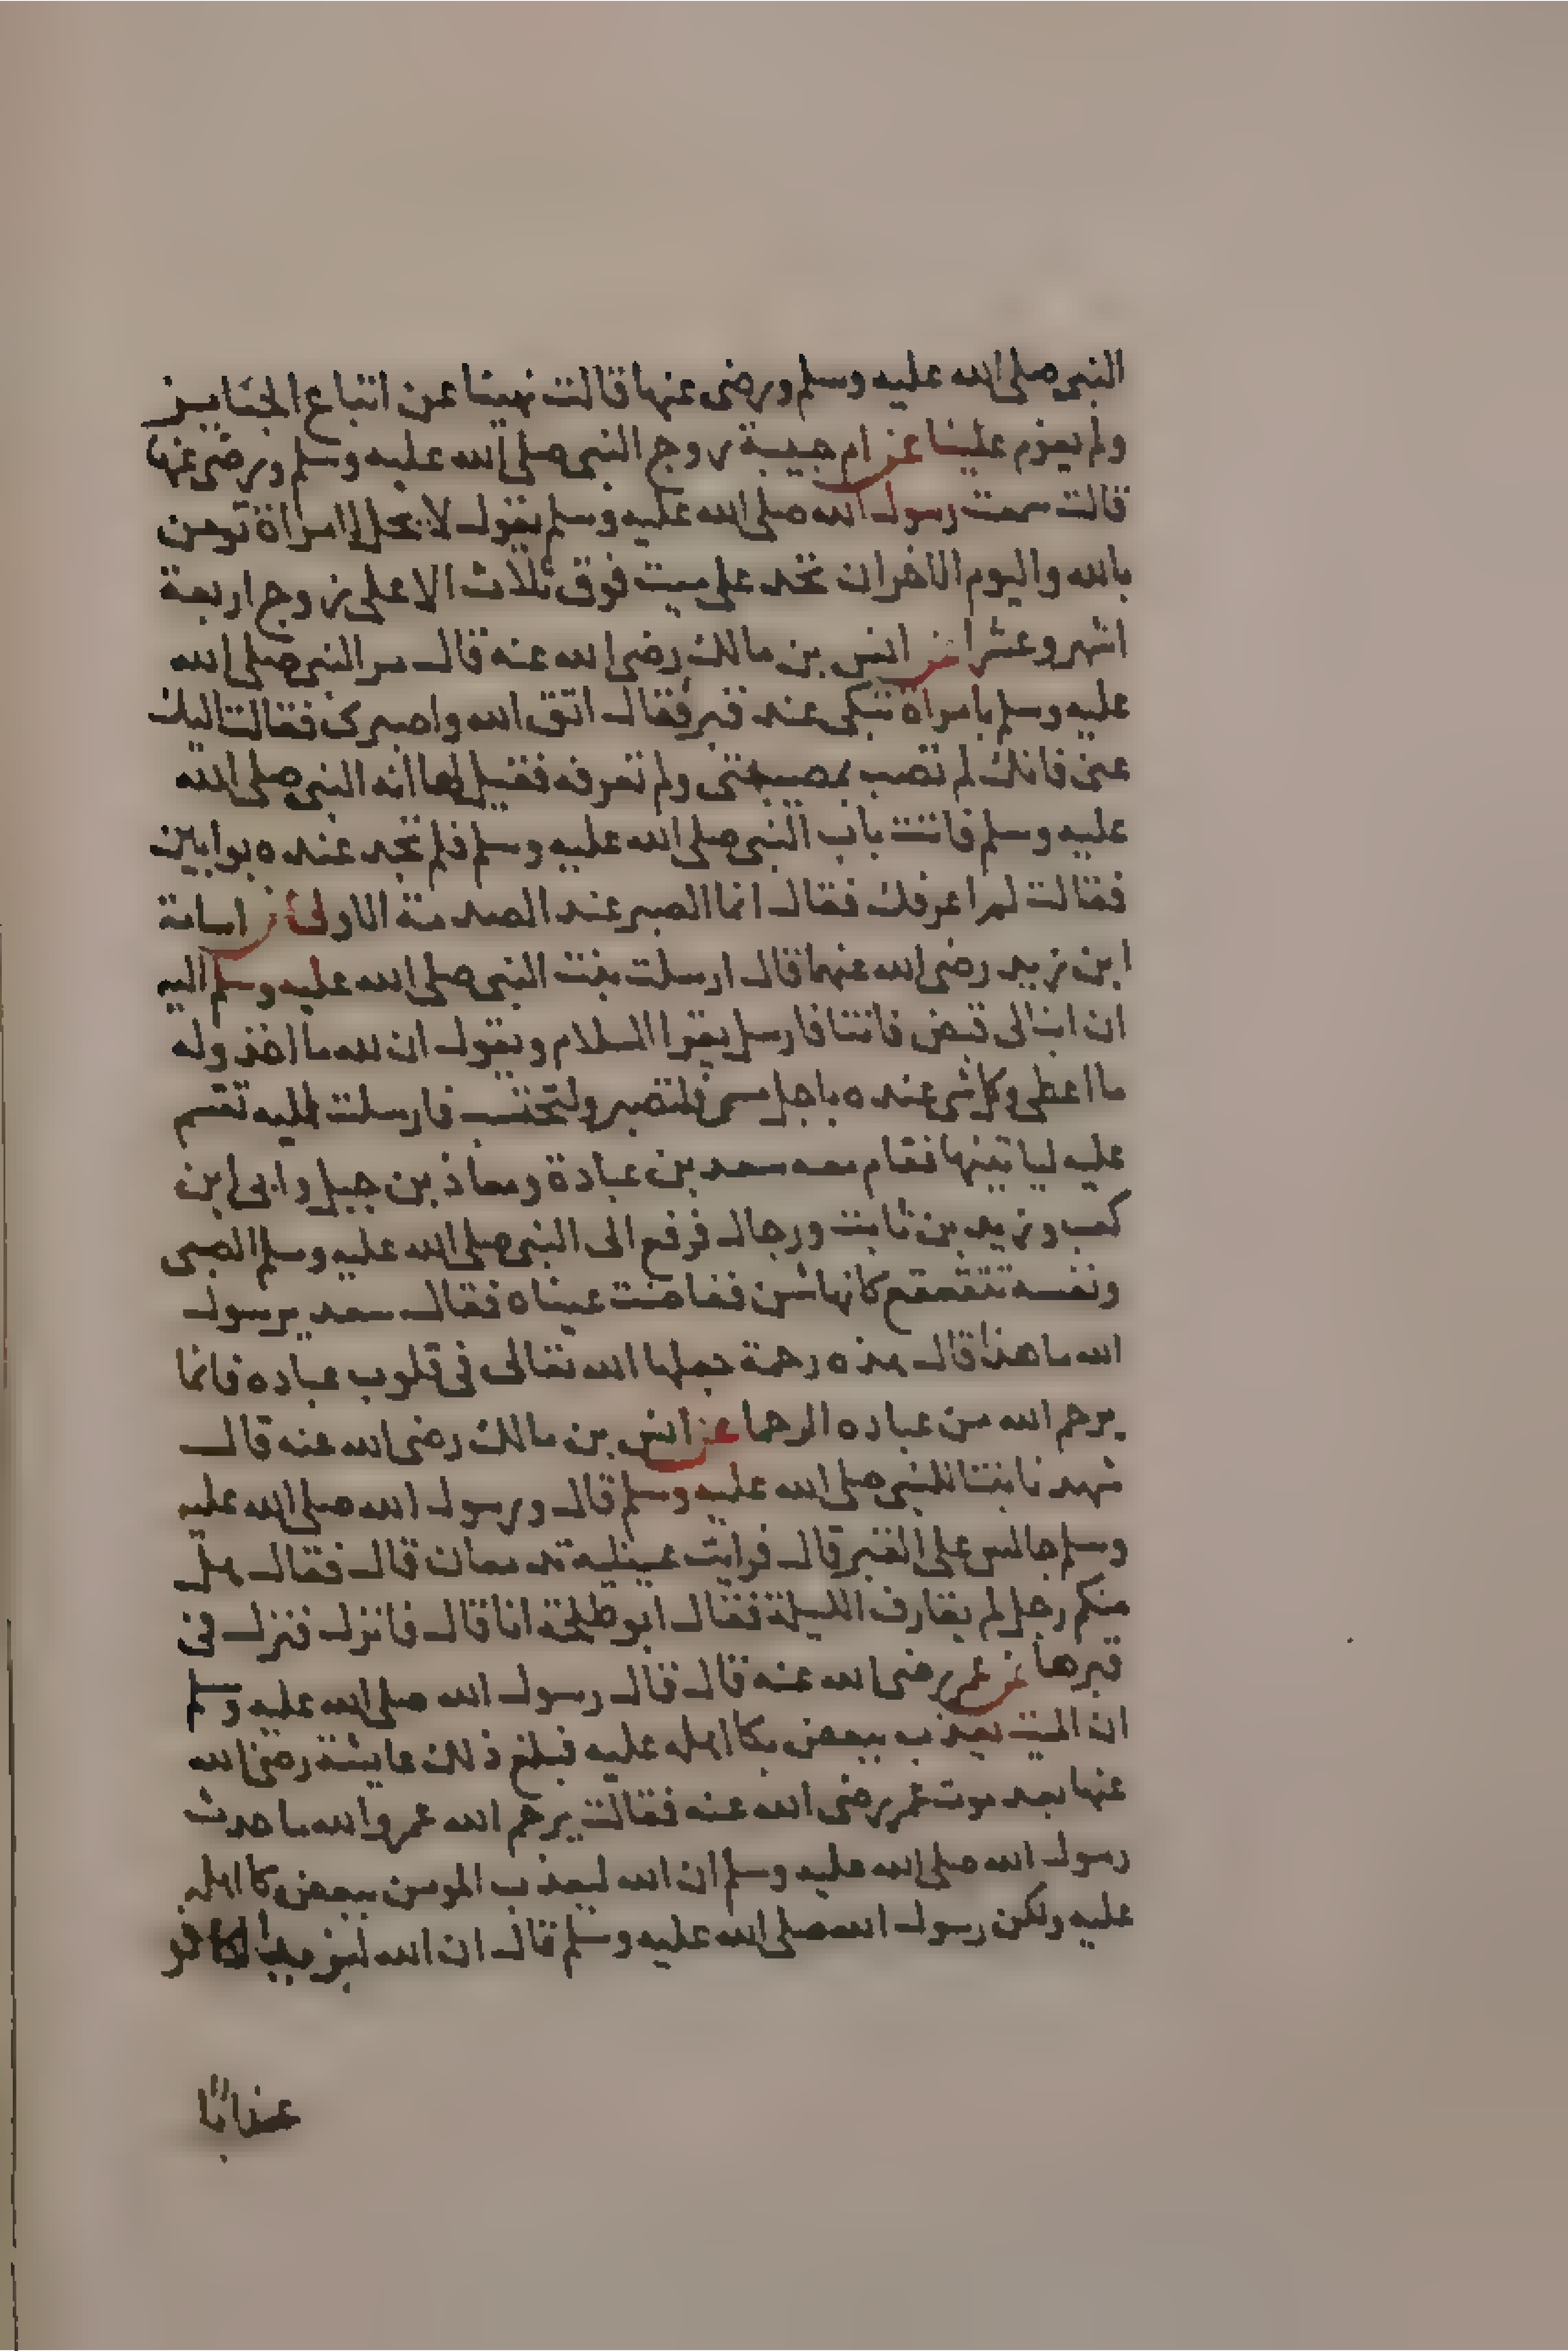 النبي صلى الله عليه وسلم ورضى عنها قالت نهينا عن اتباع الجنايز
ولم يعزم علينا عن ام حبيبة زوج النبي صلى الله عليه وسلم ورضى عنها
قالت سمعت رسول الله صلى الله عليه وسلم يقول لا يحل لامراة تومن
بالله واليوم الاخر ان تحد على ميت فوق ثلاث الا على زوج اربعة
اشهر وعشرا عن انس بن مالك رضى الله عنه قال مر النبي صلى الله
عليه وسلم بامراة تبكى عند قبر فقال اتق الله واصبرى فقالت اليك
عنى فانك لم تصب بمصيبتى ولم تعرفه فقيل لها انه النبي صلى الله
عليه وسلم فاتت باب النبي صلى الله عليه وسلم فلم تجد عنده بوابين
فقالت لم اعرفك فقال انما الصبر عند الصدمة الاولى عن اسامة
ابن زيد رضى الله عنهما قال ارسلت بنت النبي صلى الله عليه وسلم اليه
ان ابنا لى قبض فاتنا فارسل يقرا السلام ويقول ان لله ما اخذ وله
ما اعطى وكل شى عنده باجل مسمى فلتصبر ولتحتسب فارسلت اليه تقسم
عليه لياتينها فقام معه سعد بن عبادة ومعاذ بن جبل وابى ابن
كعب وزيد بن ثابت ورجال فرفع الى النبي صلى الله عليه وسلم الصبى
ونفسه تتقعقع كانها شن ففاضت عيناه فقال سعد يرسول
الله ما هذا قال هذه رحمة جعلها الله تعالى فى قلوب عباده فانما
يرحم الله من عباده الرحما عن انس بن مالك رضى الله عنه قال
شهدنا بنتا للنبي صلى الله عليه وسلم قال ورسول الله صلى الله عليه
وسلم جالس على القبر قال فرايت عينيه تدمعان قال فقال هل
منكم رجل لم يقارف الليلة فقال ابو طلحة انا قال فانزل فنزل فى
قبرها عن عمر رضى الله عنه قال قال رسول الله صلى الله عليه وسلم
ان الميت يعذب ببعض بكا اهله عليه فبلغ ذلك عايشة رضى الله
عنها بعد موت عمر رضى الله عنه فقالت يرحم الله عمر والله ما حدث
رسول الله صلى الله عليه وسلم ان الله ليعذب المومن ببعض بكا اهله
عليه ولكن رسول الله صلى الله عليه وسلم قال ان الله ليزيد الكافر
عذابا